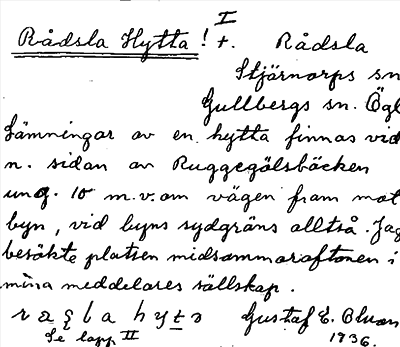 I
Rådsla Hytta! +. Rådsla
Stjärnorps sn
Gullbergs sn. Ögl
Lämningar av en hytta finnas vid
n. sidan av Ruggegölsbäcken
ung. 10 m. v. om vägen fram mot
byn, vid byns sydgräns alltså. Jag
besökte platsen midsommaraftonen i
mina meddelares sällskap.
Gustaf E. Olson
Se lapp II 1936.